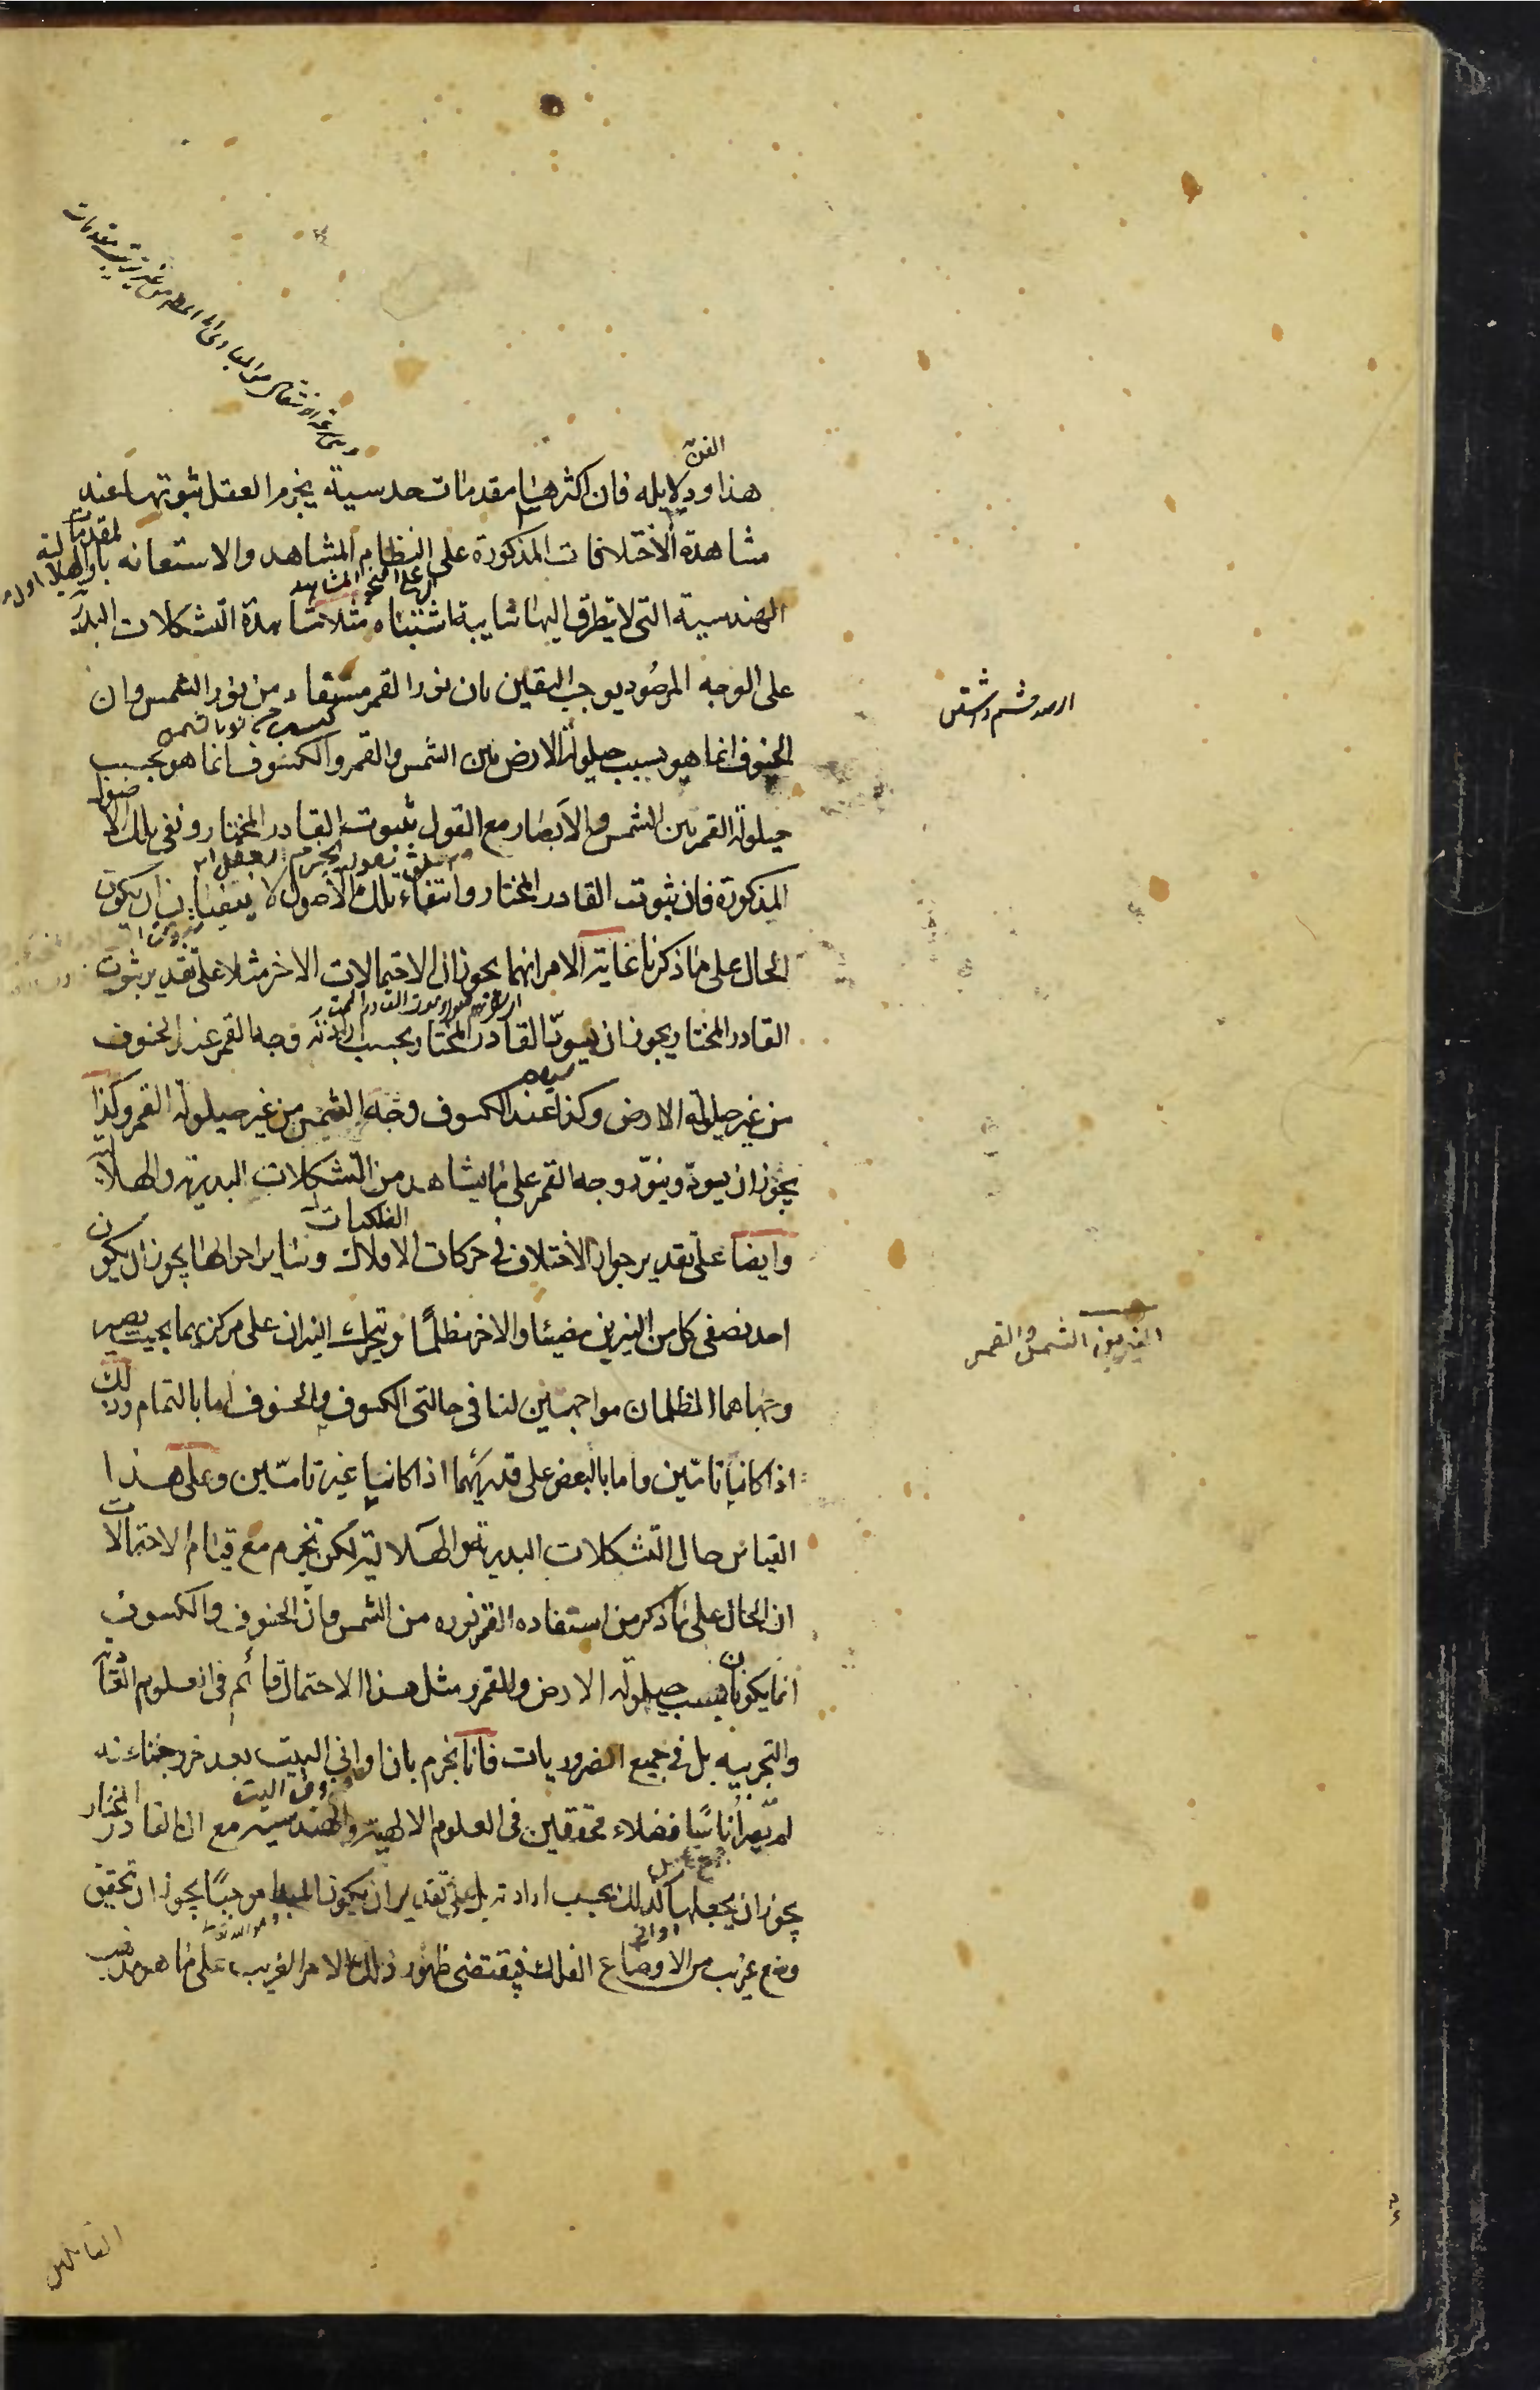 الفن
هذا ودلايله فان اكثرها مقدمات حدسية يجزم العقل بثبوتها عند
مشاهدة الاختلافات المذكورة على النظام المشاهد والاستعانه بالمقدمات
الهندسية التى لا يتطرق اليها شايبة اشتباه مثلا مشاهدة التشكلات البدرية والهلالية اولا
على الوجه المرصود يوجب اليقين بان نور القمر مستفاد من نور الشمس وان
الخسوف انما هو بسبب حيلولة الارض بين الشمس والقمر والكسوف انما هو بسبب
حيلولة القمر بين الشمس والابصار مع القول بثبوت القادر المختار ونفى تلك الاصول
المذكورة فان ثبوت القادر المختار وانتفاء تلك الاصول لا ينفيان ان يكون
الحال على ما ذكرنا غاية الامر انهما يجوزان الاحتمالات الاخر مثلا على تقدير ثبوت
القادر المختار يجوز ان يسود القادر المختار بحسب ارادته وجه القمر عند الخسوف
من غير حيلولة الارض وكذا عند الكسوف وجه الشمس من غير حيلولة القمر وكذا
يجوز ان يسود وينور وجه القمر على ما يشاهد من التشكلات البدرية والهلالية
الفلكيات
وايضا على تقدير جواز الاختلاف فى حركات الافلاك وساير احوالها يجوز ان يكون
احد نصفى كل من النيرين مضيئا والاخر مظلما ويتحرك النيران على مركزيهما بحيث يصير
النيرين الشمس والقمر
وجهاهما المظلمان مواجهين لنا فى حالتى الكسوف والخسوف اما بالتمام وذلك
اذا كانا تامين واما بالبعض على قدريهما اذا كانا غير تامين وعلى هذا
القياس حال التشكلات البدرية والهلالية لكن نجزم مع قيام الاحتمالات
ان الحال على ما ذكر من استفاده القمر نوره من الشمس وان الخسوف والكسوف
انما يكونان بسبب حيلولة الارض والقمر ومثل هذا الاحتمال قائم فى العلوم العادية
والتجربيه بل فى جميع الضروريات فانا نجزم بان اوانى البيت بعد خروجنا عنه
لم يصر اناسا فضلاء محققين فى العلوم الالهية والهندسية مع ان القادر المختار
يجوز ان يجعلها كذلك بحسب ارادته بل على تقدير ان يكون المبدأ موجبا يجوز ان يتحقق
وضع غريب من الاوضاع الفلك فيقتضى ظهور ذلك الامر الغريب على ما هو مذهب
القائلين